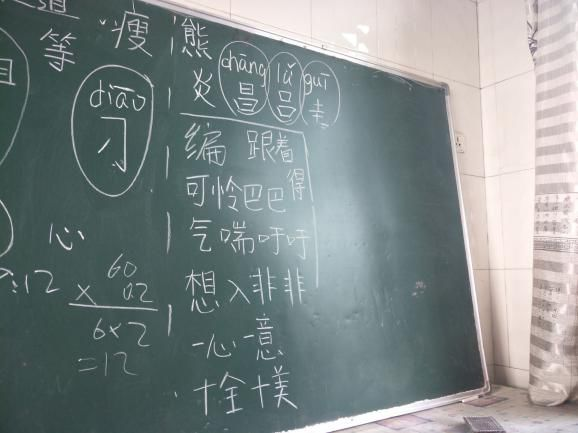 道
等 瘦
diāo
刁
心
60
× 02
6×2
=12
:12
熊 chāng lǚ guī
炎 昌 吕 圭
编 跟着
得
可怜巴巴
气喘吁吁
想入非非
一心一意
十全十美